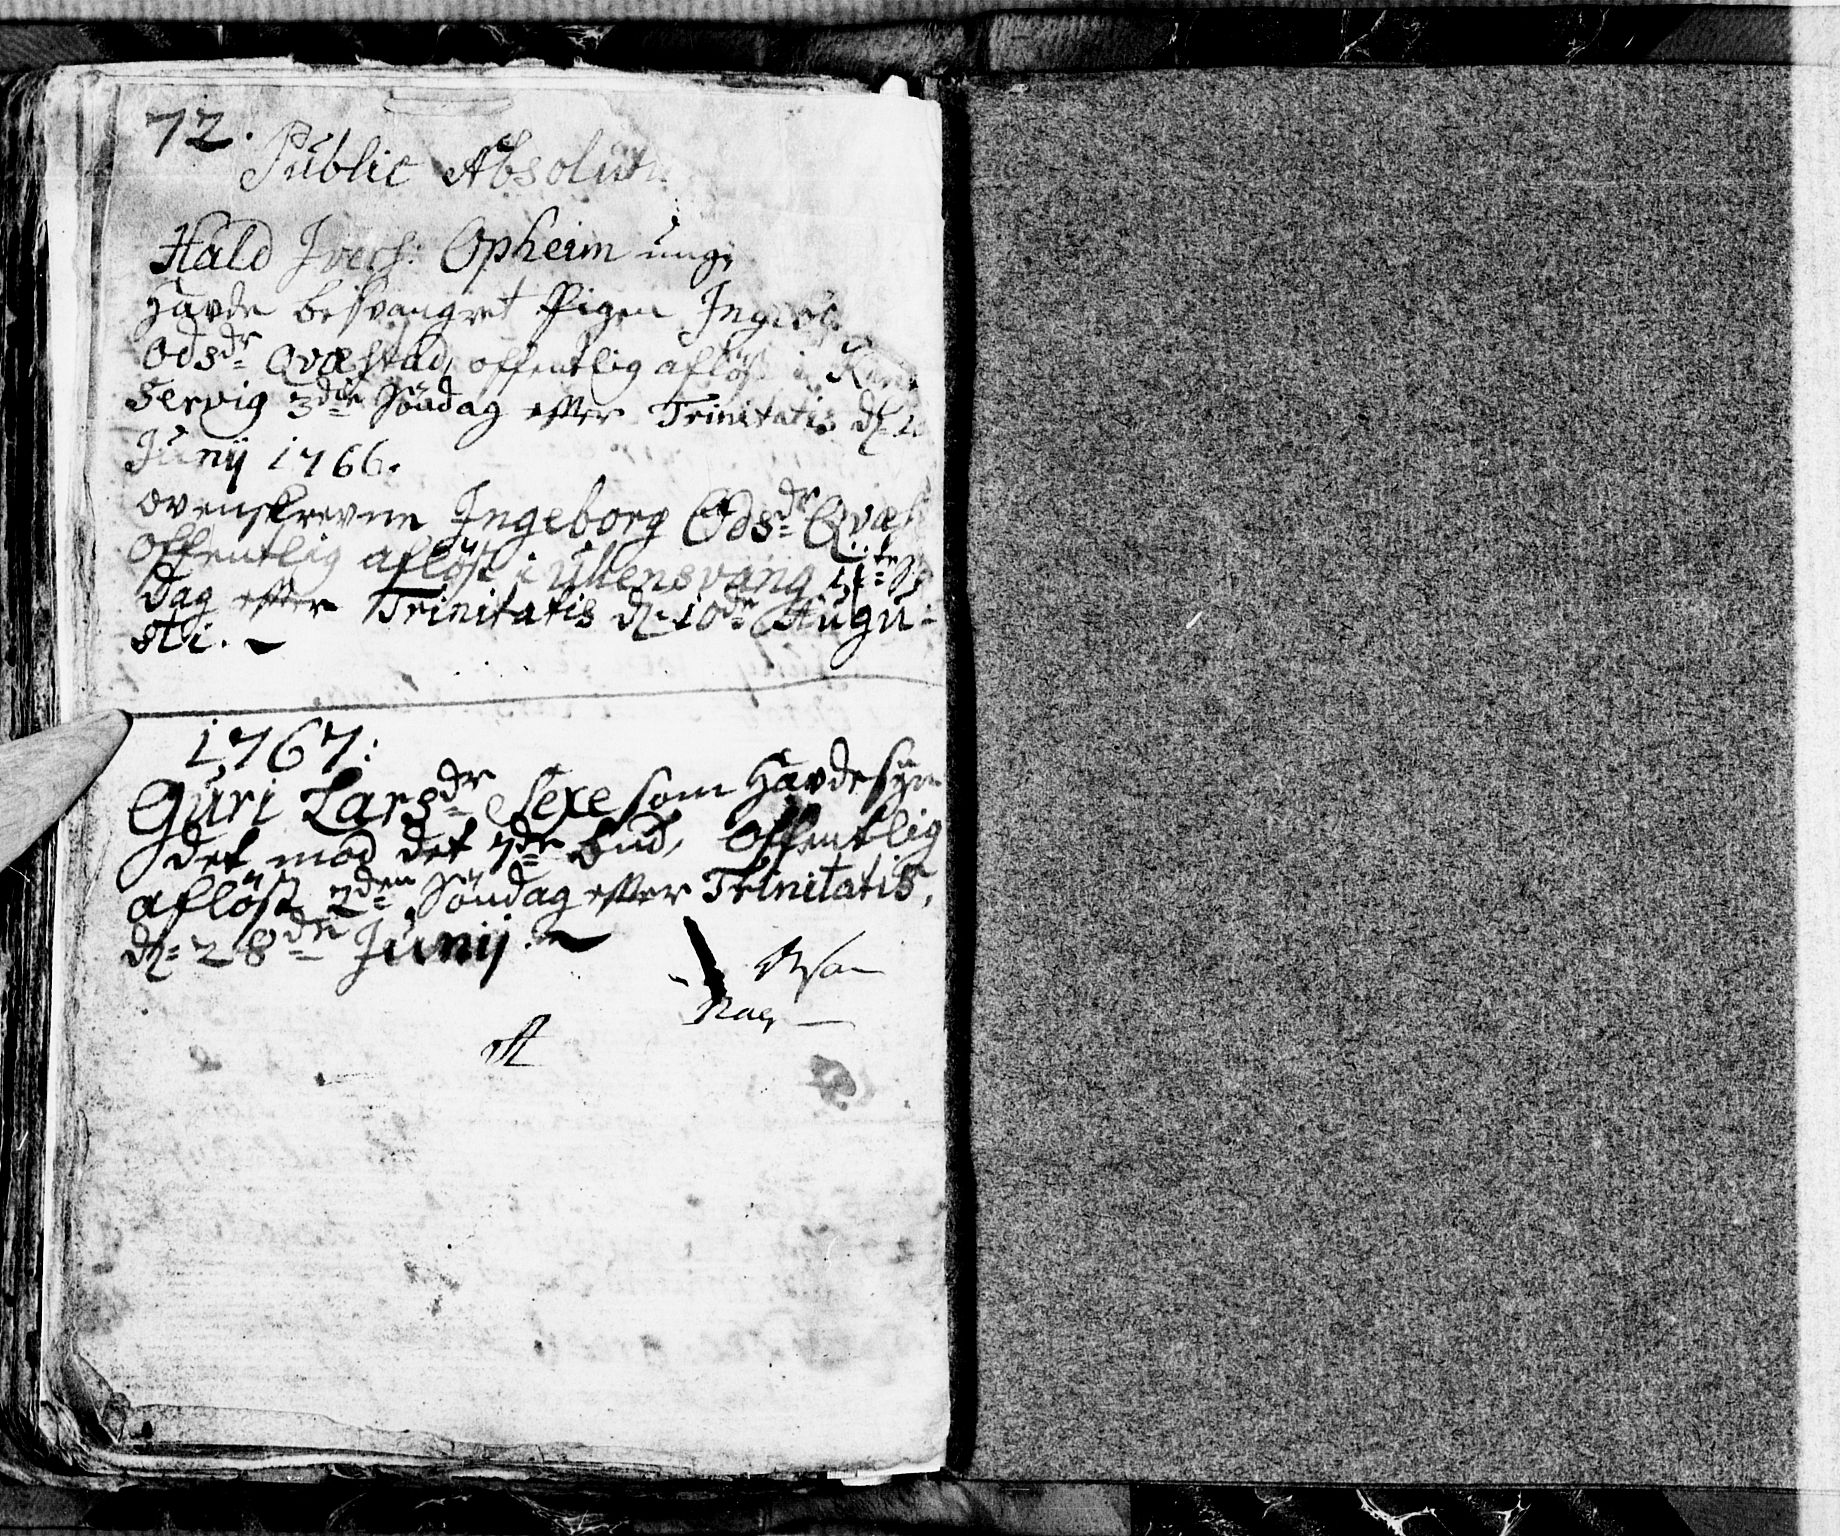 72.
Public Absolut
Hald Iversˢ: Opheim ung
Havde besvangret Pigen Ingeb
Odsdr Qvæstad, offentlig afløst i Kin
servig 3die Søndag efter Trinitatis d:
Junij 1766.
ovenskrevne Ingeborg Odsdr Qvæst
offentlig afløst i Ullensvang 11te Sø
dag efter Trinitatis d: 10de Augu-
sti.
1767:
Guri Larsdr Sexe som Havde syn
det mod det 7de bud, Offentlig
afløst 2den Søndag efter Trinitatis,
d: 28de Junij.